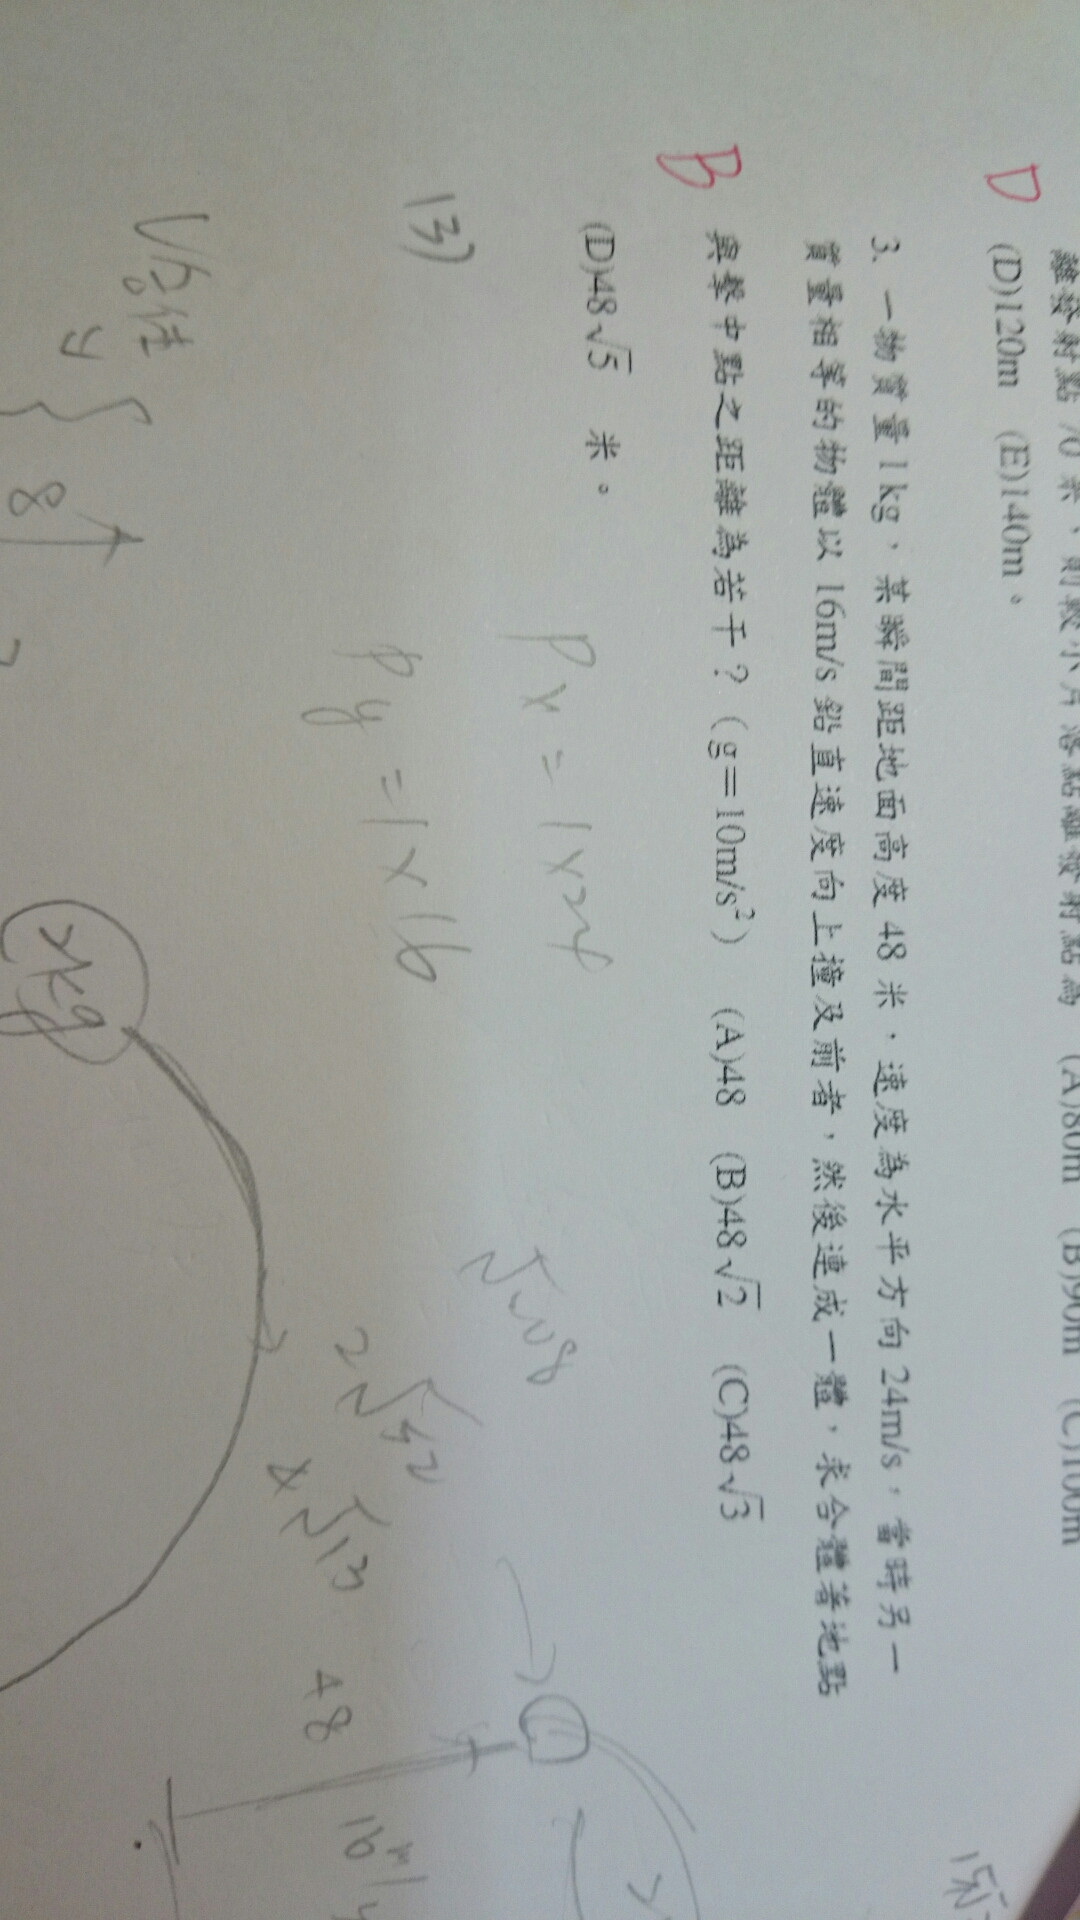 離發射點 70 米，則較小片落點離發射點為 (A)80m (B)90m (C)100m
D (D)120m (E)140m。
3、一物質量 1 kg，某瞬間距地面高度 48 米，速度為水平方向 24m/s，當時另一
質量相等的物體以 16m/s 鉛直速度向上撞及前者，然後連成一體，求合體著地點
B 與擊中點之距離為若干？（g＝10m/s²） (A)48 (B)48√2 (C)48√3
(D)48√5 米。
(3)
Px = 1×24
Py = 1×16
√208
2√52
4√13
48
16m/s
V合体
y { 8↑
2kg